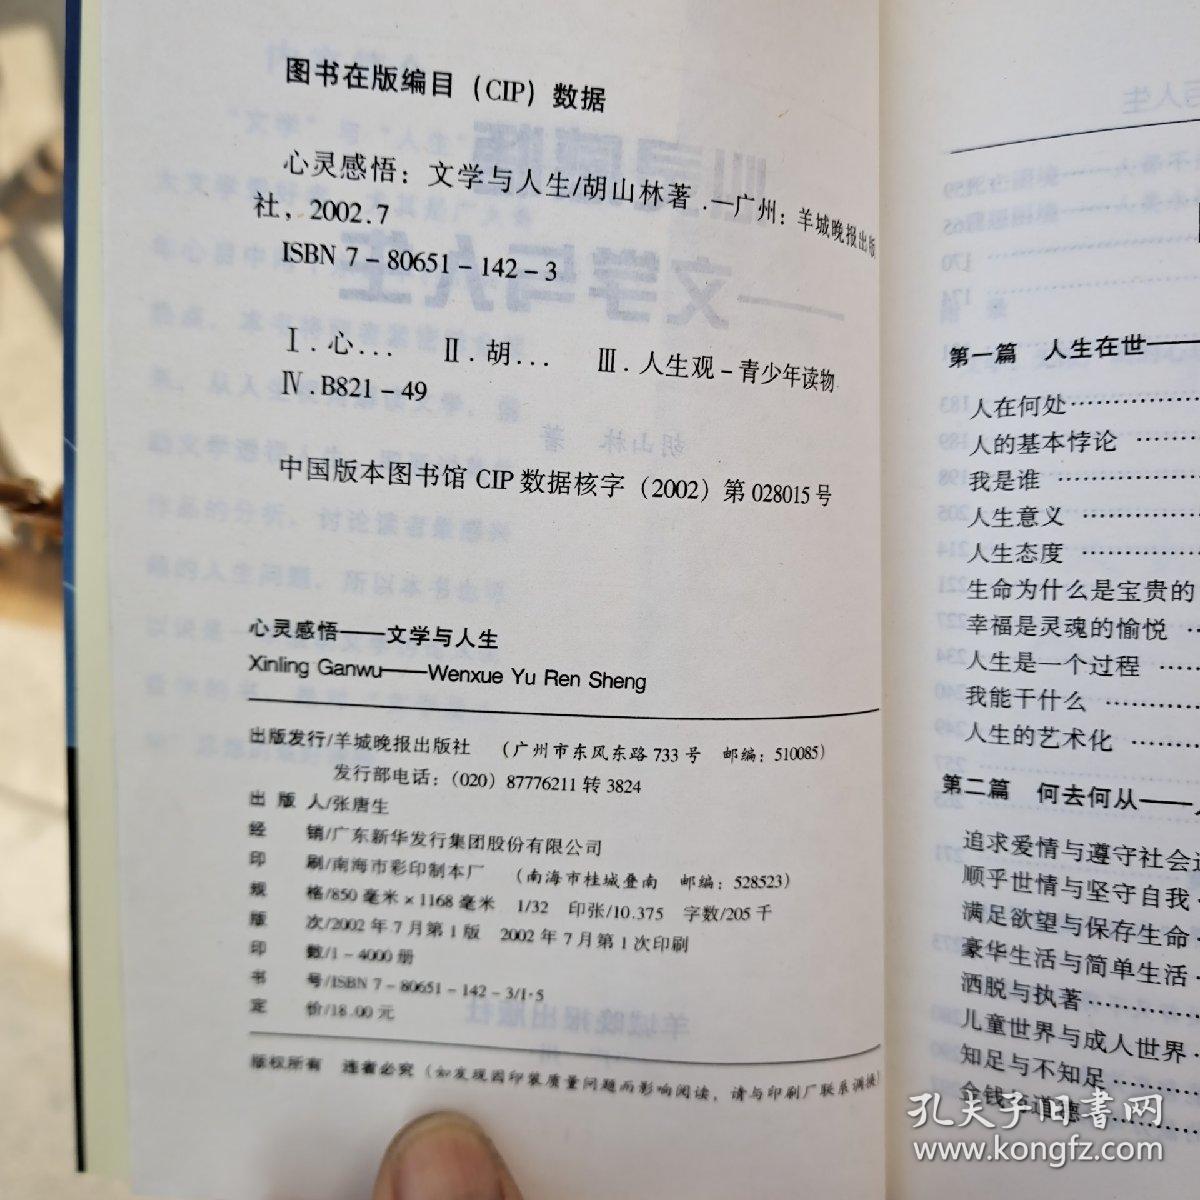 图书在版编目(CIP)数据
心灵感悟：文学与人生/胡山林著.—广州：羊城晚报出版
社，2002.7
ISBN 7-80651-142-3
Ⅰ.心… Ⅱ.胡… Ⅲ.人生观-青少年读物
Ⅳ.B821-49
中国版本图书馆CIP数据核字(2002)第028015号
心灵感悟——文学与人生
Xinling Ganwu——Wenxue Yu Ren Sheng
出版发行/羊城晚报出版社 (广州市东风东路733号 邮编：510085)
发行部电话：(020)87776211转3824
出版人/张唐生
经销/广东新华发行集团股份有限公司
印刷/南海市彩印制本厂 (南海市桂城叠南 邮编：528523)
规格/850毫米×1168毫米 1/32 印张/10.375 字数/205千
版次/2002年7月第1版 2002年7月第1次印刷
印数/1-4000册
书号/ISBN 7-80651-142-3/I·5
定价/18.00元
版权所有 违者必究(如发现因印装质量问题而影响阅读，请与印刷厂联系调换)
第一篇 人生在世——
人在何处……
人的基本悖论……
我是谁……
人生意义……
人生态度……
生命为什么是宝贵的
幸福是灵魂的愉悦…
人生是一个过程……
我能干什么……
人生的艺术化……
第二篇 何去何从——
追求爱情与遵守社会
顺乎世情与坚守自我
满足欲望与保存生命
豪华生活与简单生活
洒脱与执著……
儿童世界与成人世界
知足与不知足……
金钱与道德……
孔夫子旧书网
www.kongfz.com